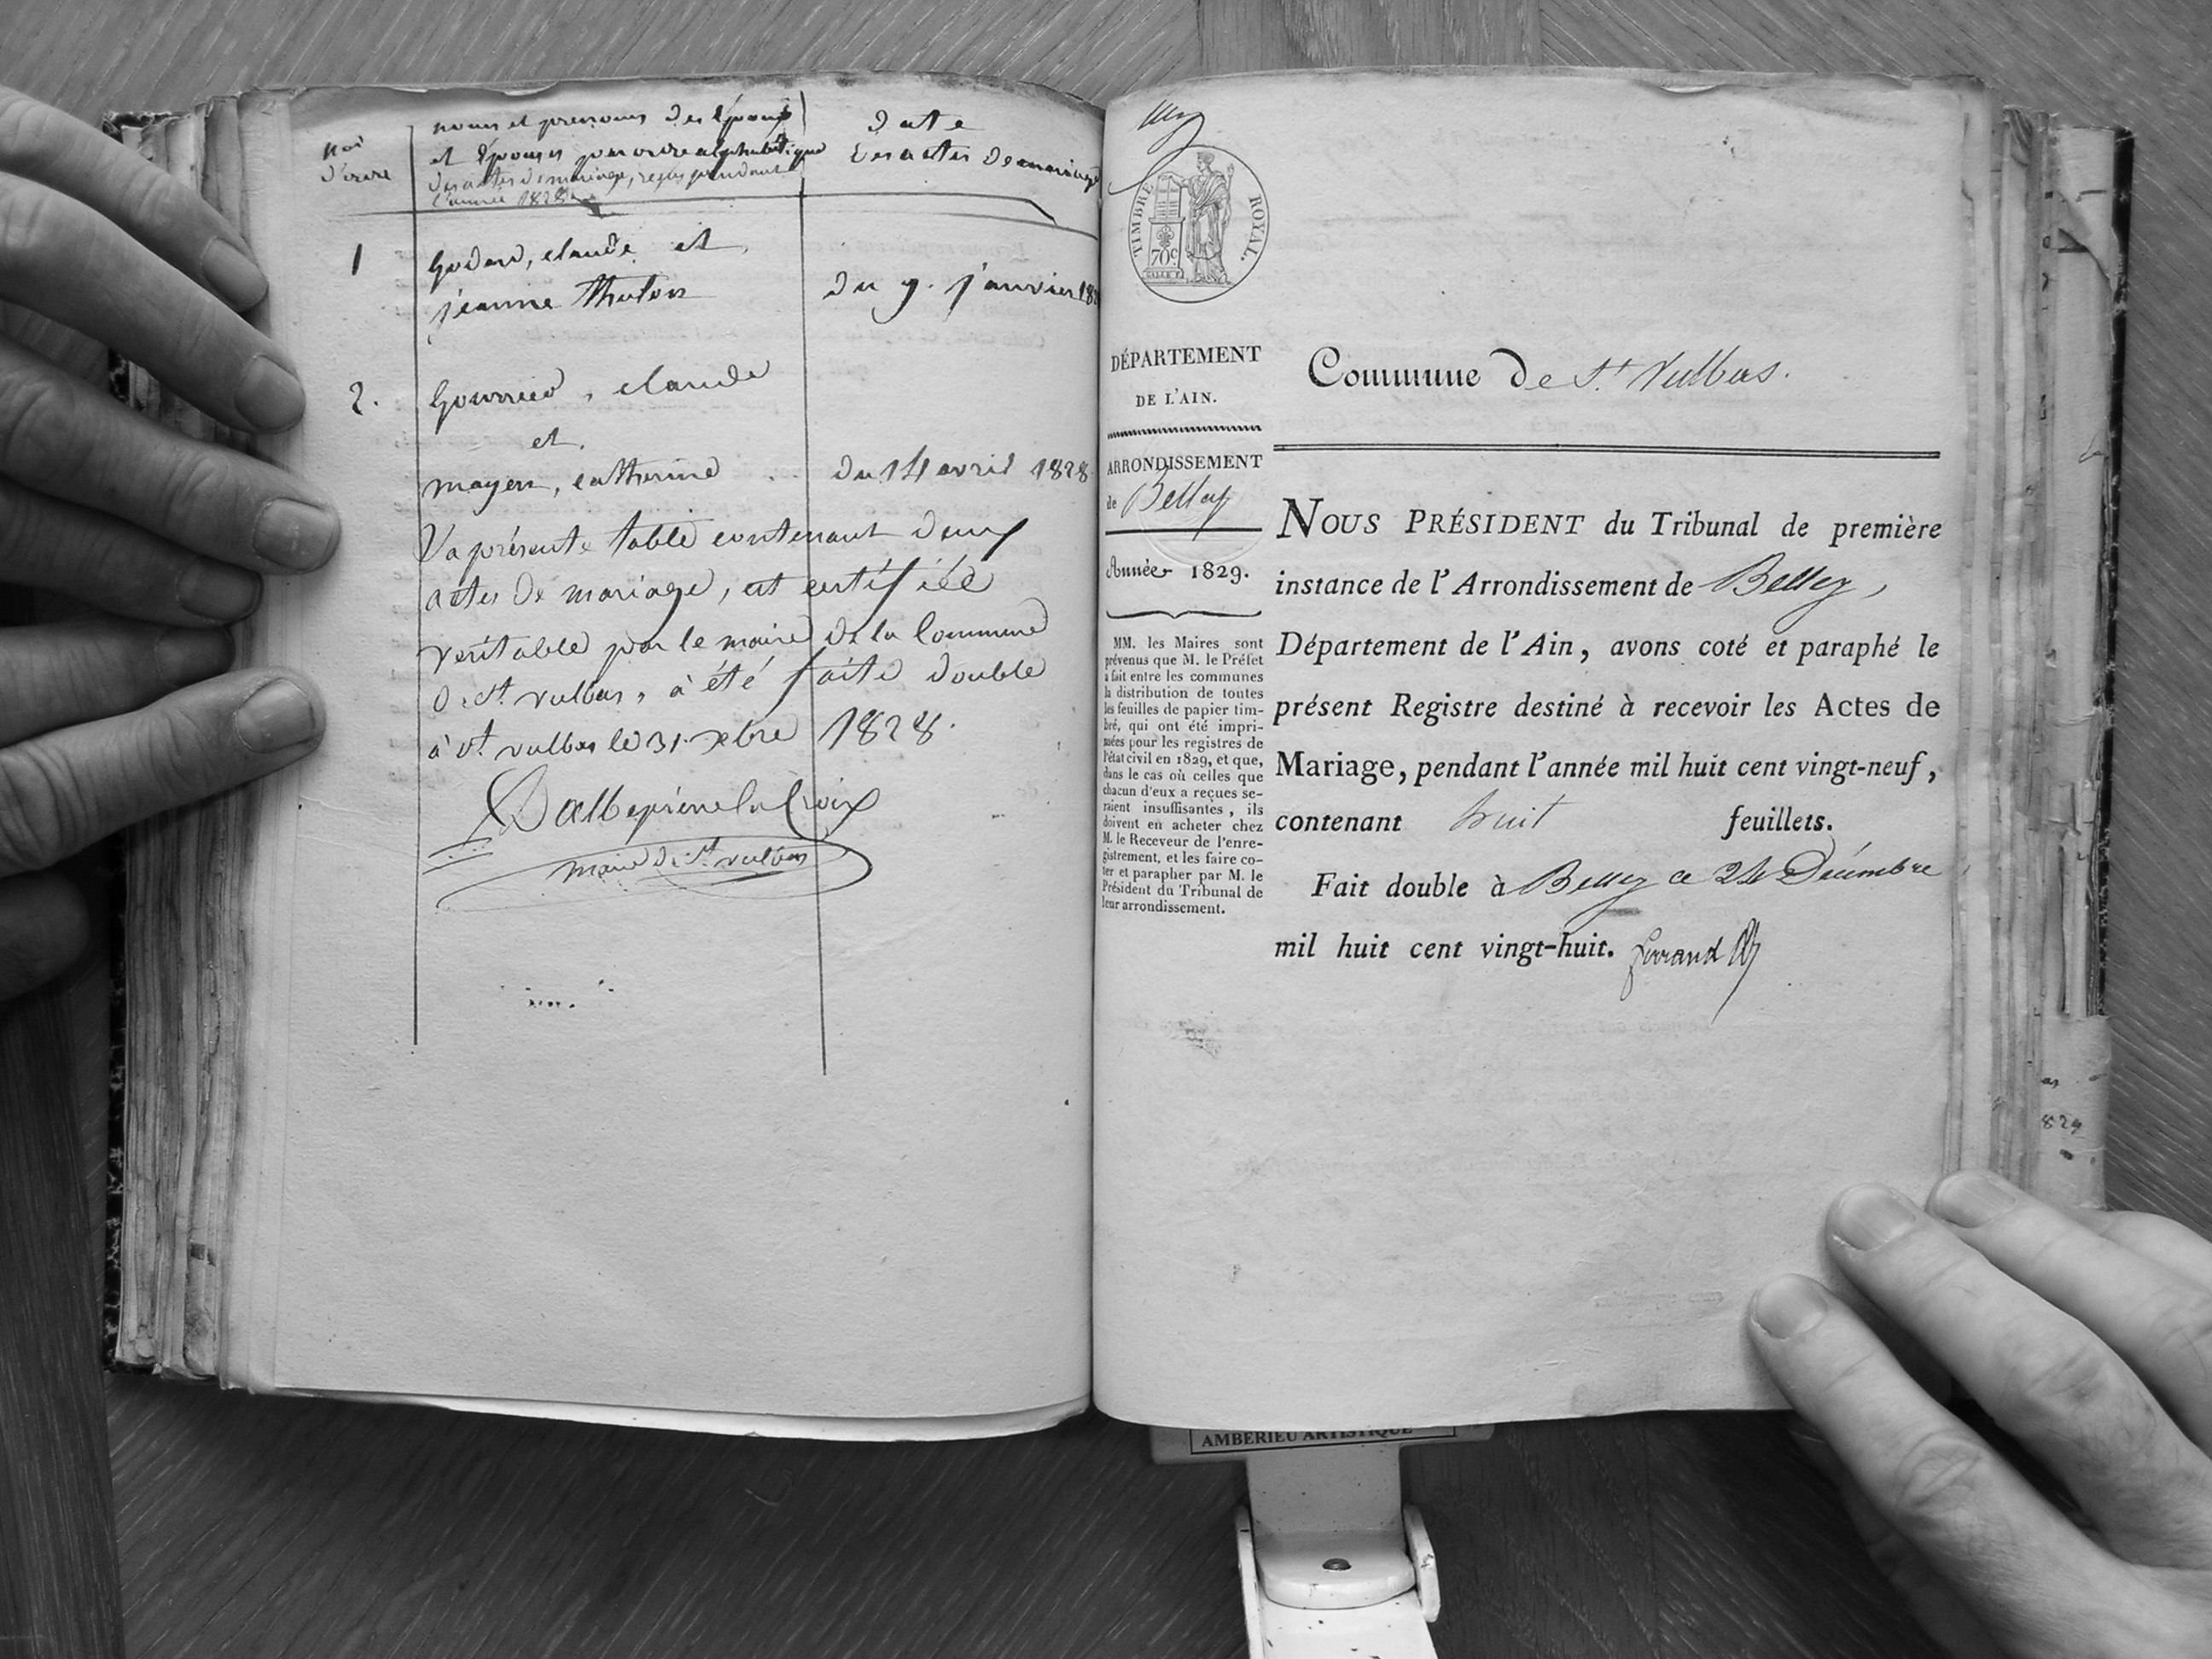 Nos
d'ordre
noms et prenoms des Epoux
et Epouses par ordre alphabétique
des actes de mariage, reçus pendant
l'année 1828
Date
des actes de mariage
1
Godard, claude et
jeanne
du 9. janvier 18
2.
claude
et
catherine
du 14 avril 1828
La présente table contenant deux
actes de mariage, est certifiée
veritable par le maire de la Commune
de St. vulbas, à été faite double
à St. vulbas le 31. xbre 1828.
maire de St. vulbas
TIMBRE ROYAL.
70c.
DÉPARTEMENT
DE L'AIN.
ARRONDISSEMENT
de Belley
Année 1829.
MM. les Maires sont
prévenus que M. le Préfet
a fait entre les communes
la distribution de toutes
les feuilles de papier tim-
bré, qui ont été impri-
mées pour les registres de
l'état civil en 1829, et que,
dans le cas où celles que
chacun d'eux a reçues se-
raient insuffisantes, ils
doivent en acheter chez
M. le Receveur de l'enre-
gistrement, et les faire co-
ter et parapher par M. le
Président du Tribunal de
leur arrondissement.
Commune de St. Vulbas.
NOUS PRÉSIDENT du Tribunal de première
instance de l'Arrondissement de Belley,
Département de l'Ain, avons coté et paraphé le
présent Registre destiné à recevoir les Actes de
Mariage, pendant l'année mil huit cent vingt-neuf,
contenant huit feuillets.
Fait double à Belley ce 24 Décembre
mil huit cent vingt-huit.
829
AMBERIEU ARTISTIQUE